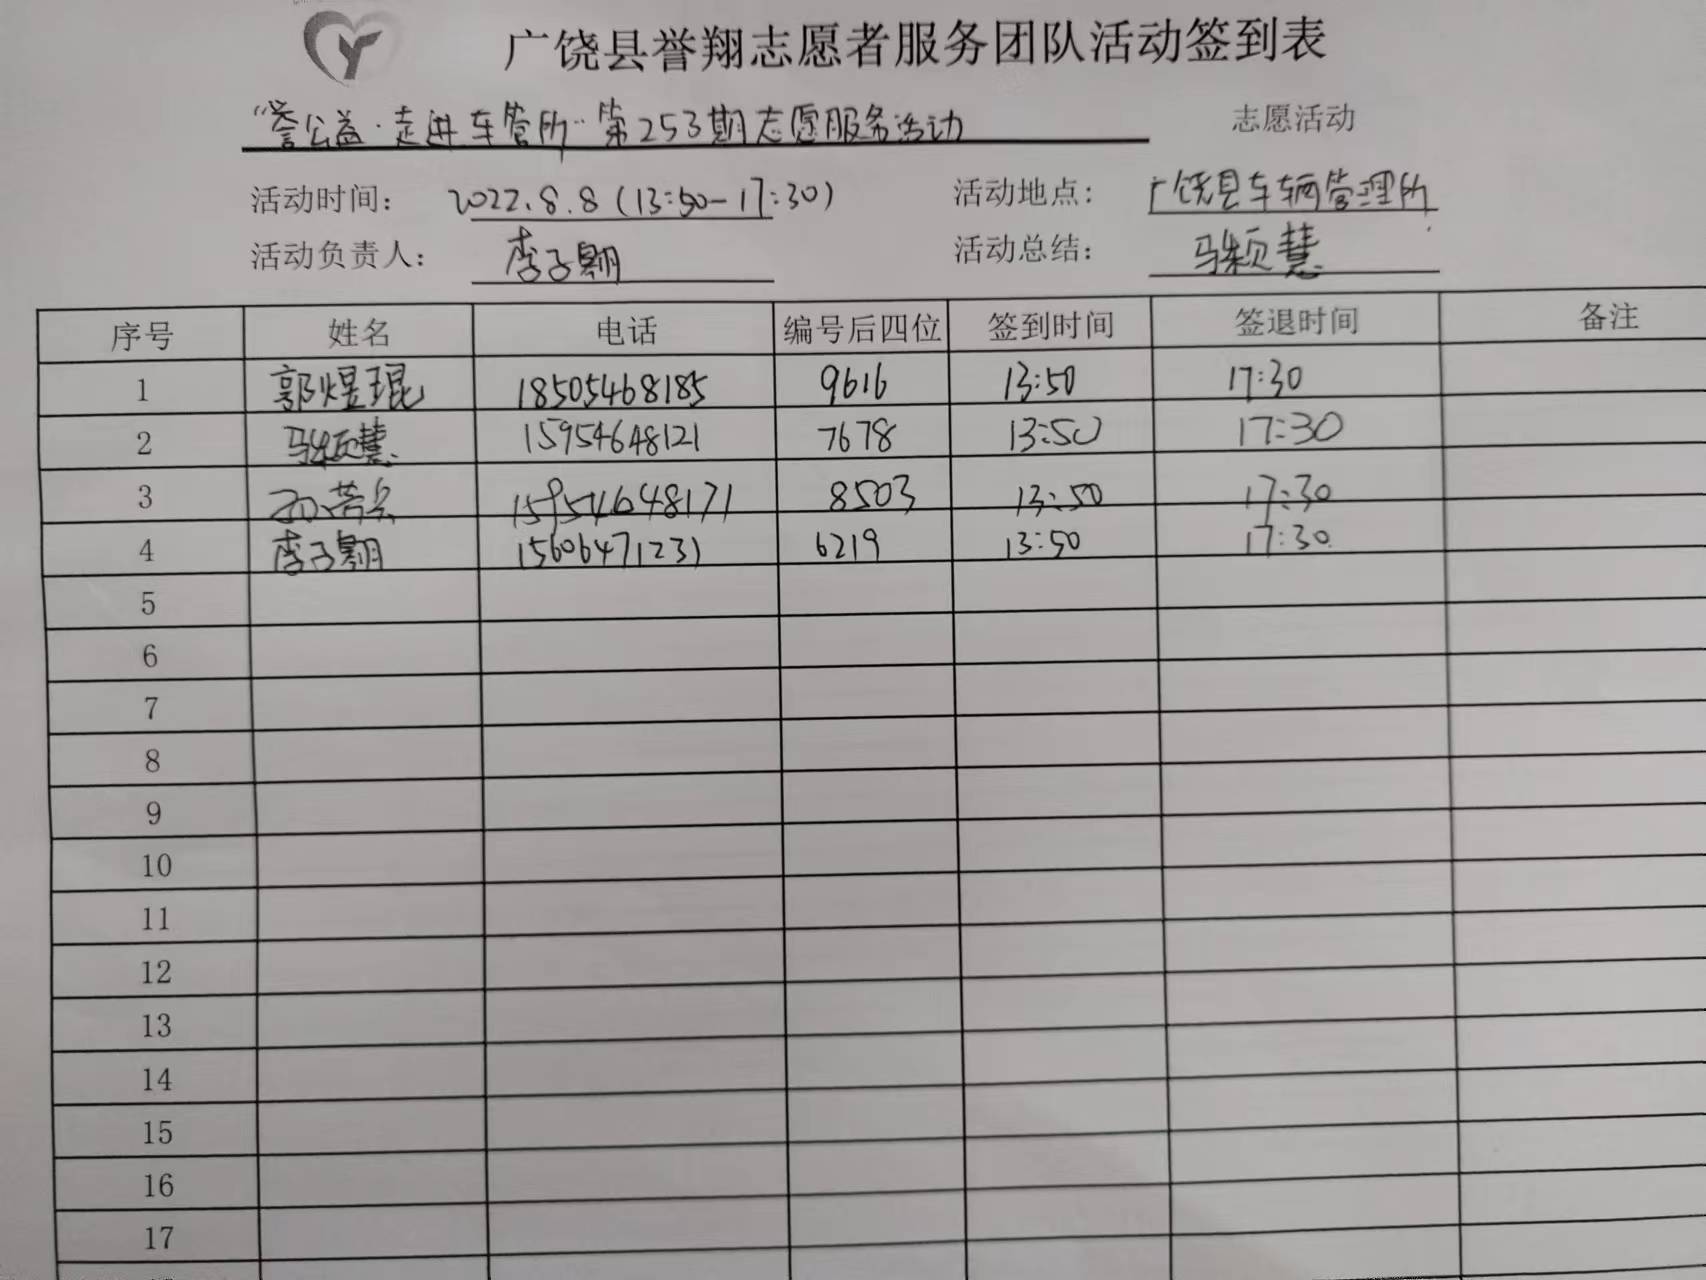 广饶县誉翔志愿者服务团队活动签到表
“誉公益·走进车管所”第253期志愿服务活动 志愿活动
活动时间： 2022.8.8（13:50-17:30） 活动地点： 广饶县车辆管理所
活动负责人： 李子翱 活动总结： 马颖慧
序号 姓名 电话 编号后四位 签到时间 签退时间 备注
1 郭煜琨 18505468185 9616 13:50 17:30
2 马颖慧 15954648121 7678 13:50 17:30
3 孙芳兵 15954648171 8503 13:50 17:30
4 李子翱 15606471231 6219 13:50 17:30
5
6
7
8
9
10
11
12
13
14
15
16
17